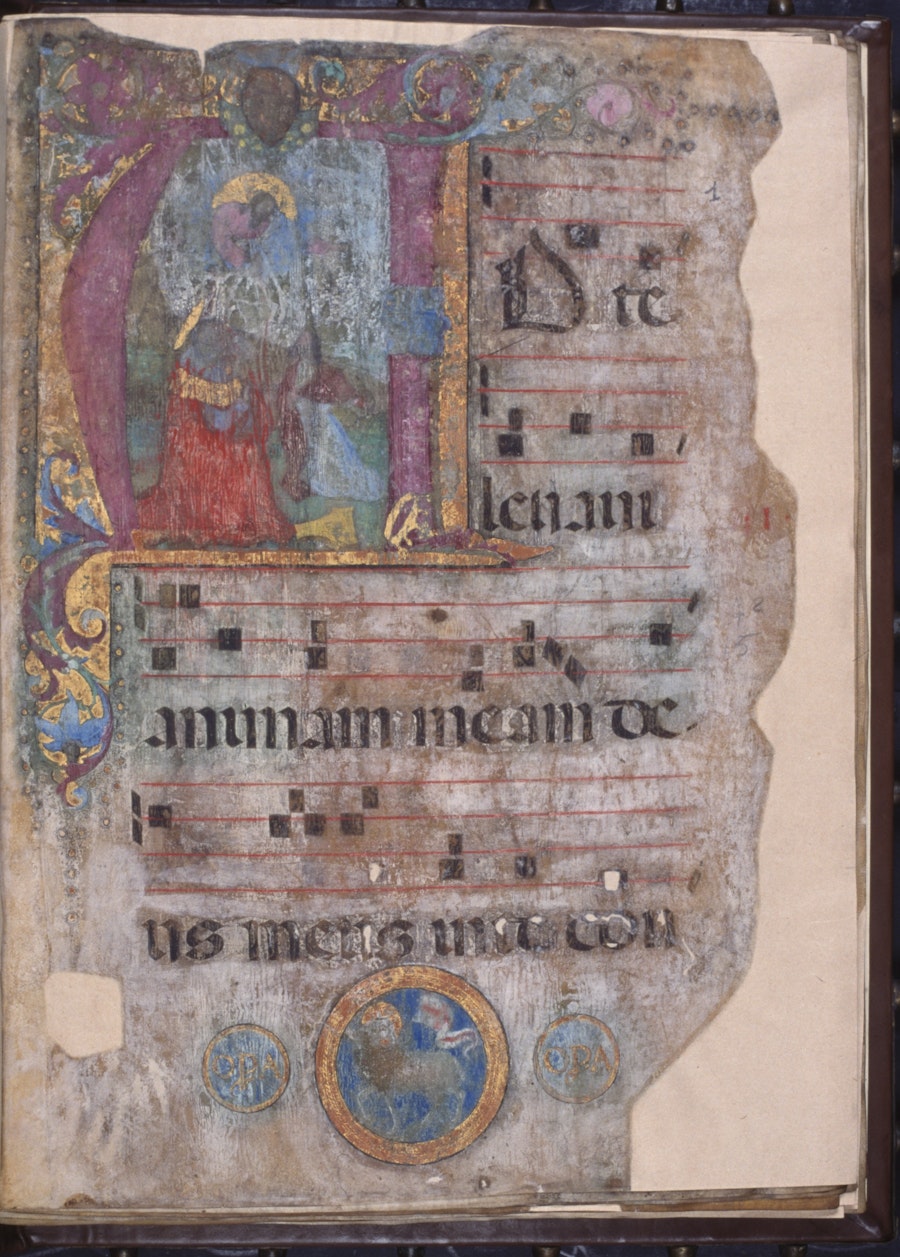 AD te
1
leuaui
animam meam de
us meus in te con
OPA OPA